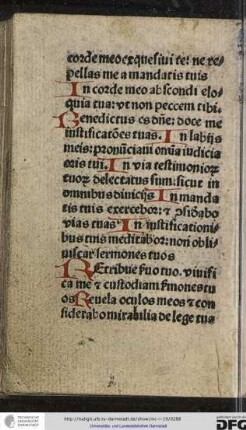 corde meo exquesiui te: ne re-
pellas me a mandatis tuis
In corde meo abscondi elo-
quia tua: vt non peccem tibi.
Benedictus es dñe: doce me
iustificatões tuas. In labijs
meis: pronũciaui omĩa iudicia
oris tui. In via testimonioꝝ
tuoꝝ delectatus sum: sicut in
omnibus diuicijs In manda
tis tuis exercebor: ⁊ ↄsidabo
vias tuas In iustificationi-
bus tuis meditabor: non obli-
uiscar sermones tuos
Retribue ſuo tuo. viuifi
ca me ⁊ custodiam ſmones tu
os Reuela oculos meos ⁊ con
siderabo mirabilia de lege tua
http://tudigit.ulb.tu-darmstadt.de/show/
Universitäts- und Landesbibliothek Darmstadt
DFG